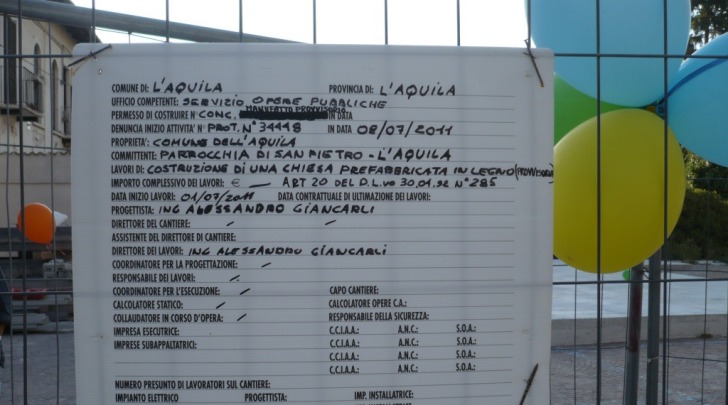 COMUNE DI: L'AQUILA PROVINCIA DI: L'AQUILA
UFFICIO COMPETENTE: SERVIZIO OPERE PUBBLICHE
MANUFATTO PROVVISORIO
PERMESSO DI COSTRUIRE N° CONC. IN DATA
DENUNCIA INIZIO ATTIVITA' N° PROT. N° 34448 IN DATA 08/07/2011
PROPRIETA': COMUNE DELL'AQUILA
COMMITTENTE: PARROCCHIA DI SAN PIETRO - L'AQUILA
LAVORI DI: COSTRUZIONE DI UNA CHIESA PREFABBRICATA IN LEGNO (PROVVISORIA)
IMPORTO COMPLESSIVO DEI LAVORI: € — ART 20 DEL D.L.vo 30.04.92 N° 285
DATA INIZIO LAVORI: 01/07/2011 DATA CONTRATTUALE DI ULTIMAZIONE DEI LAVORI:
PROGETTISTA: ING ALESSANDRO GIANCARLI
DIRETTORE DEL CANTIERE: / /
ASSISTENTE DEL DIRETTORE DI CANTIERE:
DIRETTORE DEI LAVORI: ING ALESSANDRO GIANCARLI
COORDINATORE PER LA PROGETTAZIONE: /
RESPONSABILE DEI LAVORI: /
COORDINATORE PER L'ESECUZIONE: / CAPO CANTIERE:
CALCOLATORE STATICO: / CALCOLATORE OPERE C.A.:
COLLAUDATORE IN CORSO D'OPERA: / RESPONSABILE DELLA SICUREZZA:
IMPRESA ESECUTRICE: C.C.I.A.A.: A.N.C.: S.O.A.:
IMPRESE SUBAPPALTATRICI: C.C.I.A.A.: A.N.C.: S.O.A.:
C.C.I.A.A.: A.N.C.: S.O.A.:
C.C.I.A.A.: A.N.C.: S.O.A.:
NUMERO PRESUNTO DI LAVORATORI SUL CANTIERE:
IMPIANTO ELETTRICO PROGETTISTA: IMP. INSTALLATRICE: